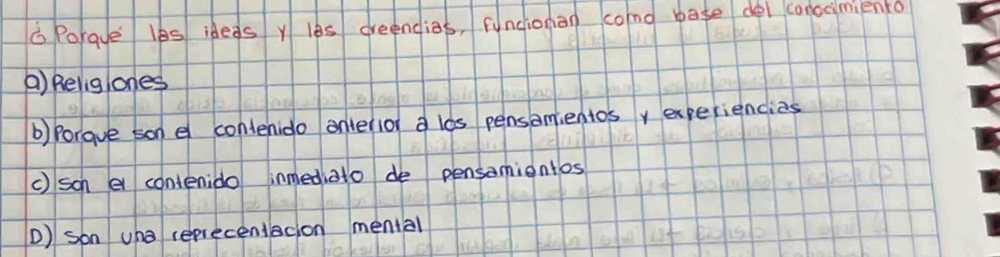 ¿Porqué las ideas y las creencias, funcionan como base del conocimiento
a) Religiones
b) Porque son el contenido anterior a los pensamientos y experiencias
c) son el contenido inmediato de pensamientos
D) son una reprecentacion mental